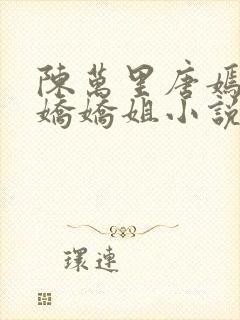 陳萬里唐嫣
嬌嬌姐小說
環連